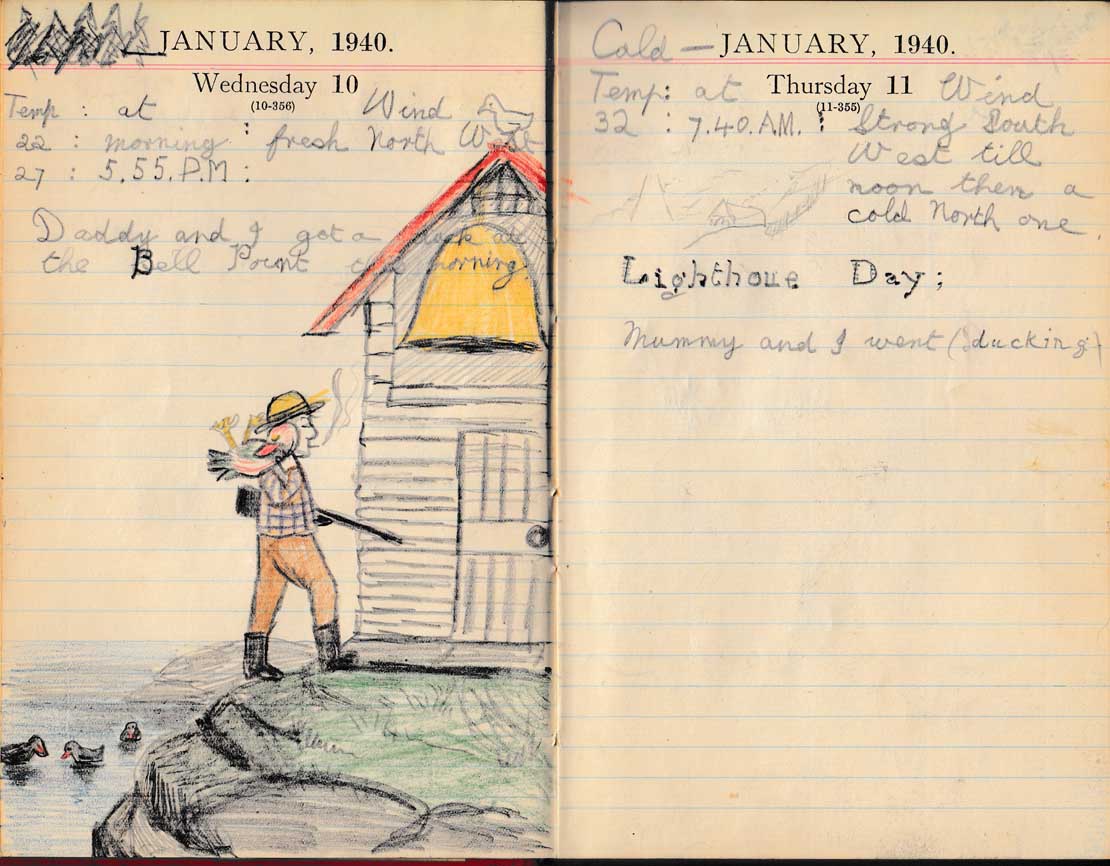 JANUARY, 1940.
Wednesday 10
(10-356)
Temp : at : Wind
22 : morning : fresh North West
27 : 5.55.P.M :
Daddy and I got a duck at
the Bell Point this morning.
Cold — JANUARY, 1940.
Temp: at Thursday 11 Wind
(11-355)
32 : 7.40.A.M. : Strong South
West till
noon then a
cold North one.
Lighthoue Day;
Mummy and I went (ducking)